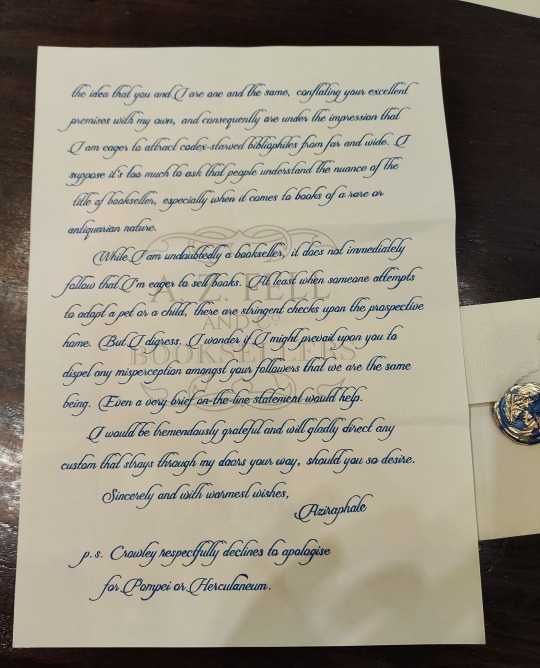 the idea that you and I are one and the same, conflating your excellent
premises with my own, and consequently are under the impression that
I am eager to attract codex-starved bibliophiles from far and wide. I
suppose it's too much to ask that people understand the nuance of the
title of bookseller, especially when it comes to books of a rare or
antiquarian nature.
While I am undoubtedly a bookseller, it does not immediately
follow that I'm eager to sell books. At least when someone attempts
to adopt a pet or a child, there are stringent checks upon the prospective
home. But I digress. I wonder if I might prevail upon you to
dispel any misperception amongst your followers that we are the same
being. Even a very brief on-the-line statement would help.
I would be tremendously grateful and will gladly direct any
custom that strays through my doors your way, should you so desire.
Sincerely and with warmest wishes,
Aziraphale
p.s. Crowley respectfully declines to apologise
for Pompei or Herculaneum.
A. Z. FELL
AND CO.
BOOKSELLERS